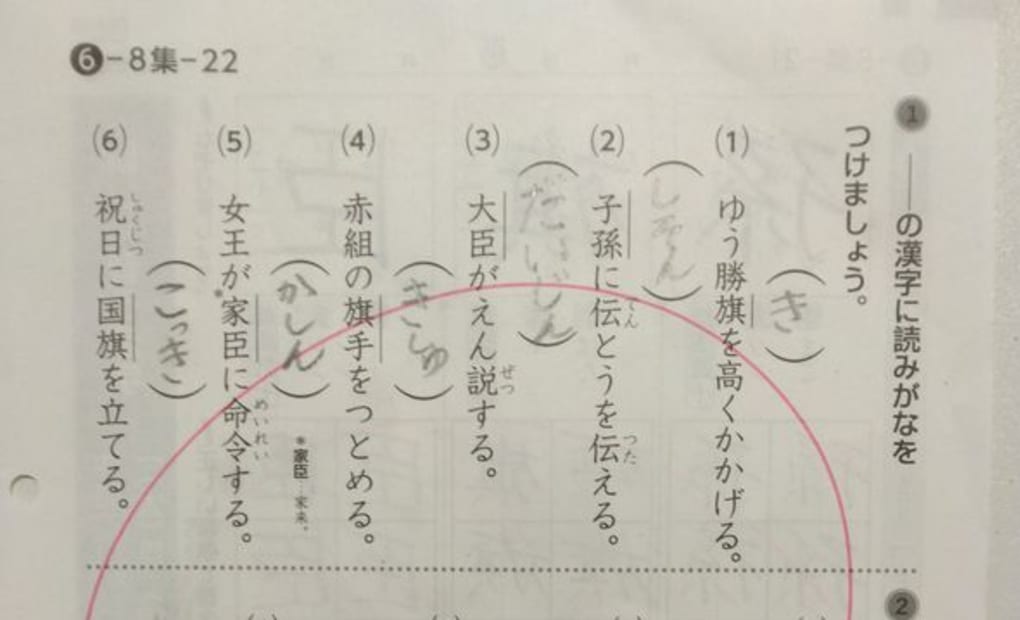 ❻-8集-22
❶ ――の漢字に読みがなを
つけましょう。
(1) ゆう勝旗を高くかかげる。
(き)
(2) 子孫に伝とうを伝える。
でん
つた
(しそん)
(3) 大臣がえん説する。
ぜつ
(だいじん)
(4) 赤組の旗手をつとめる。
(きしゅ)
(5) 女王が*家臣に命令する。
めいれい
(かしん)
*家臣…家来。
(6) 祝日に国旗を立てる。
しゅくじつ
(こっき)
❷